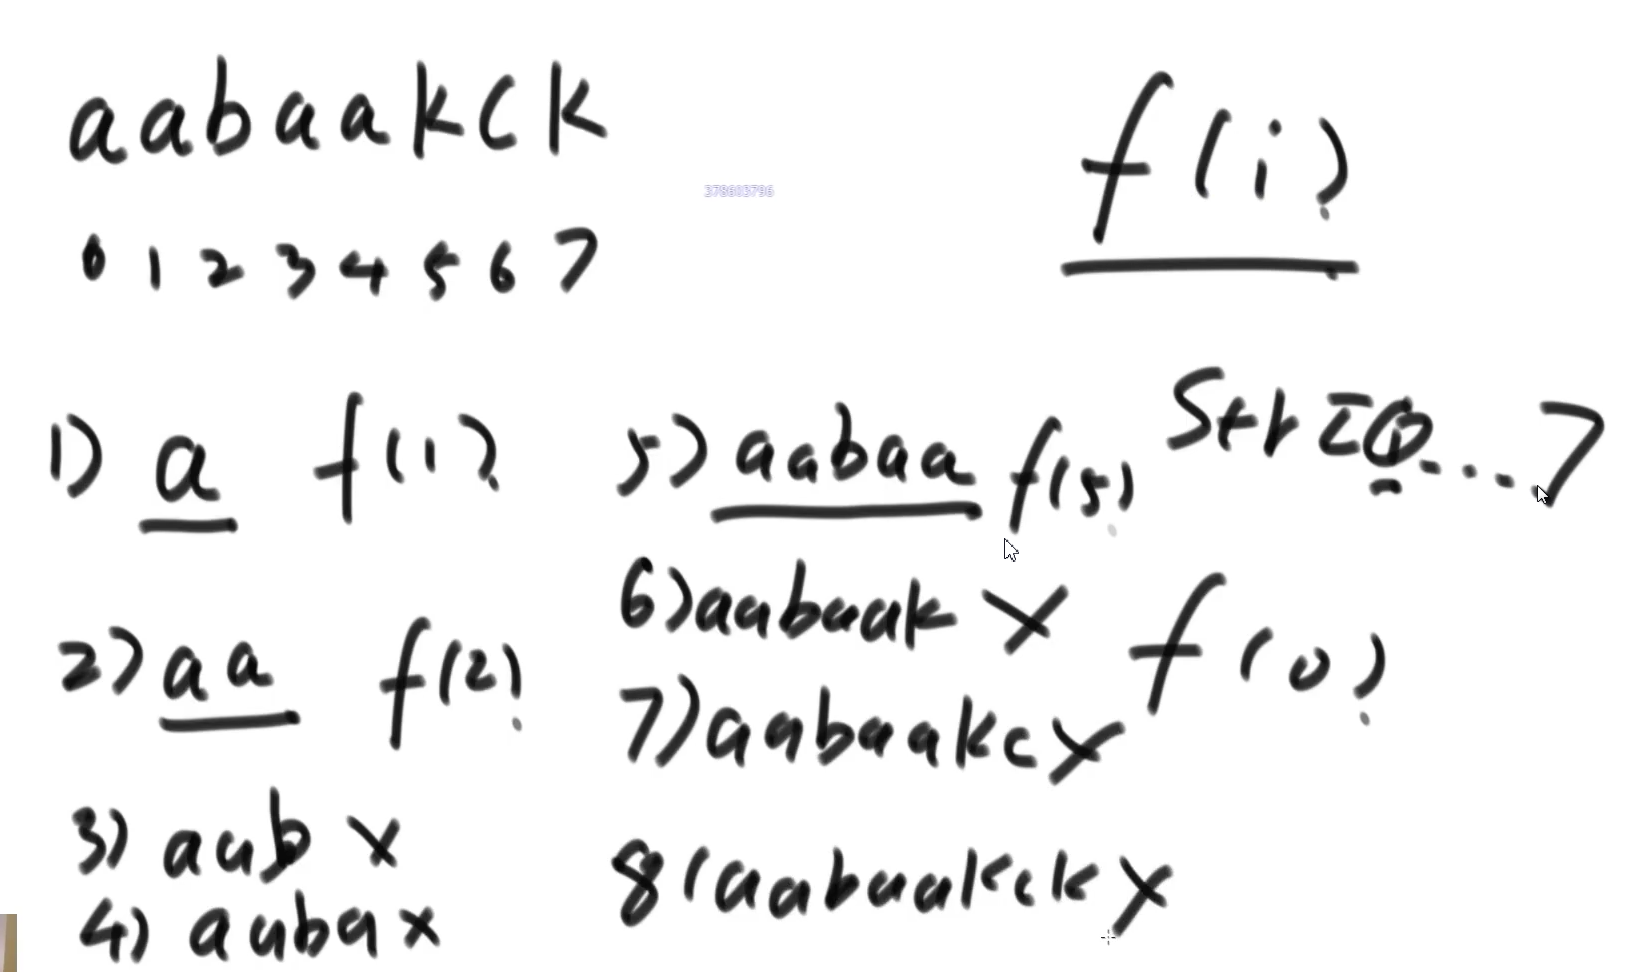 aabaakck
378603796
f(i)
0 1 2 3 4 5 6 7
1) a f(1)
5) aabaa f(5)
0...7
6) aabaak x
f(0)
2) aa f(2)
7) aabaakc x
3) aab x
8( aabaakck x
4) aaba x